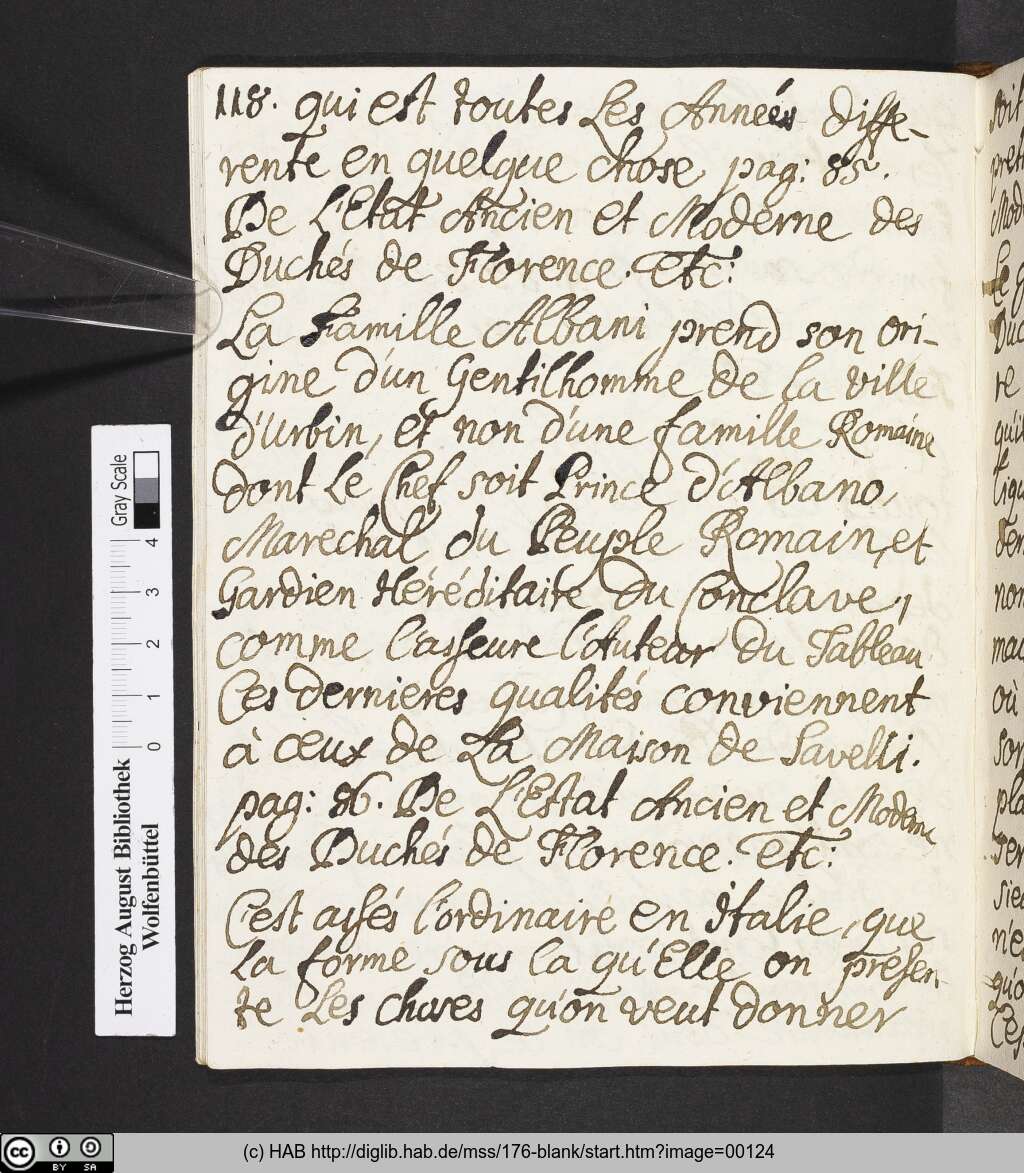 118. qui est toutes Les Anneés diffe-
rente en quelque chose pag: 85.
De L'Etat Ancien et Moderne des
Duchés de Florence. Etc:
La Famille Albani prend son ori-
gine d'un Gentilhomme de la ville
d'Urbin, et non d'une famille Romaine
dont Le Chef soit Prince d'Albano,
Marechal du Peuple Romain, et
Gardien Héréditaire du Conclave,
comme l'asseure l'Auteur du Tableau
Ces dernieres qualités conviennent
à ceux de La Maison de Savelli.
pag: 86. De L'Estat Ancien et Moderne
des Duchés de Florence. Etc:
C'est assés l'ordinaire en Italie, que
La forme sous la qu'Elle on presen-
te Les choses qu'on veut donner
soit
pret
Mod
Le
Duc
re
qu'il
liqu
der
non
mai
où
son
pla
Ter
sie
n'e
qu'o
Ces
Gray Scale
4
3
2
1
0
Herzog August Bibliothek
Wolfenbüttel
cc BY SA
(c) HAB http://diglib.hab.de/mss/176-blank/start.htm?image=00124